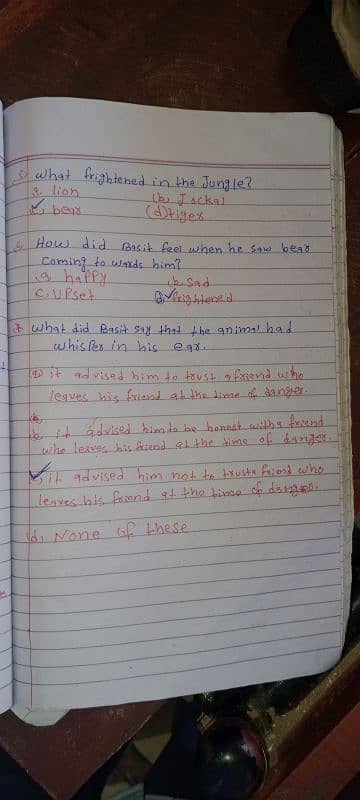 5) What frightened in the Jungle?
a. lion (b. Jackal
c. bear (d) tiger
How did Basit feel when he saw bear
coming to wards him?
a happy b sad
c. UPset D) frightened
what did Basit say that the animal had
whisper in his ear.
(a) it advised him to trust a friend who
leaves his friend at the time of danger.
b it advised him to be honest with a friend
who leaves his friend at the time of danger.
it advised him not to trust a friend who
leaves his friend at the time of danger.
(d) None of these